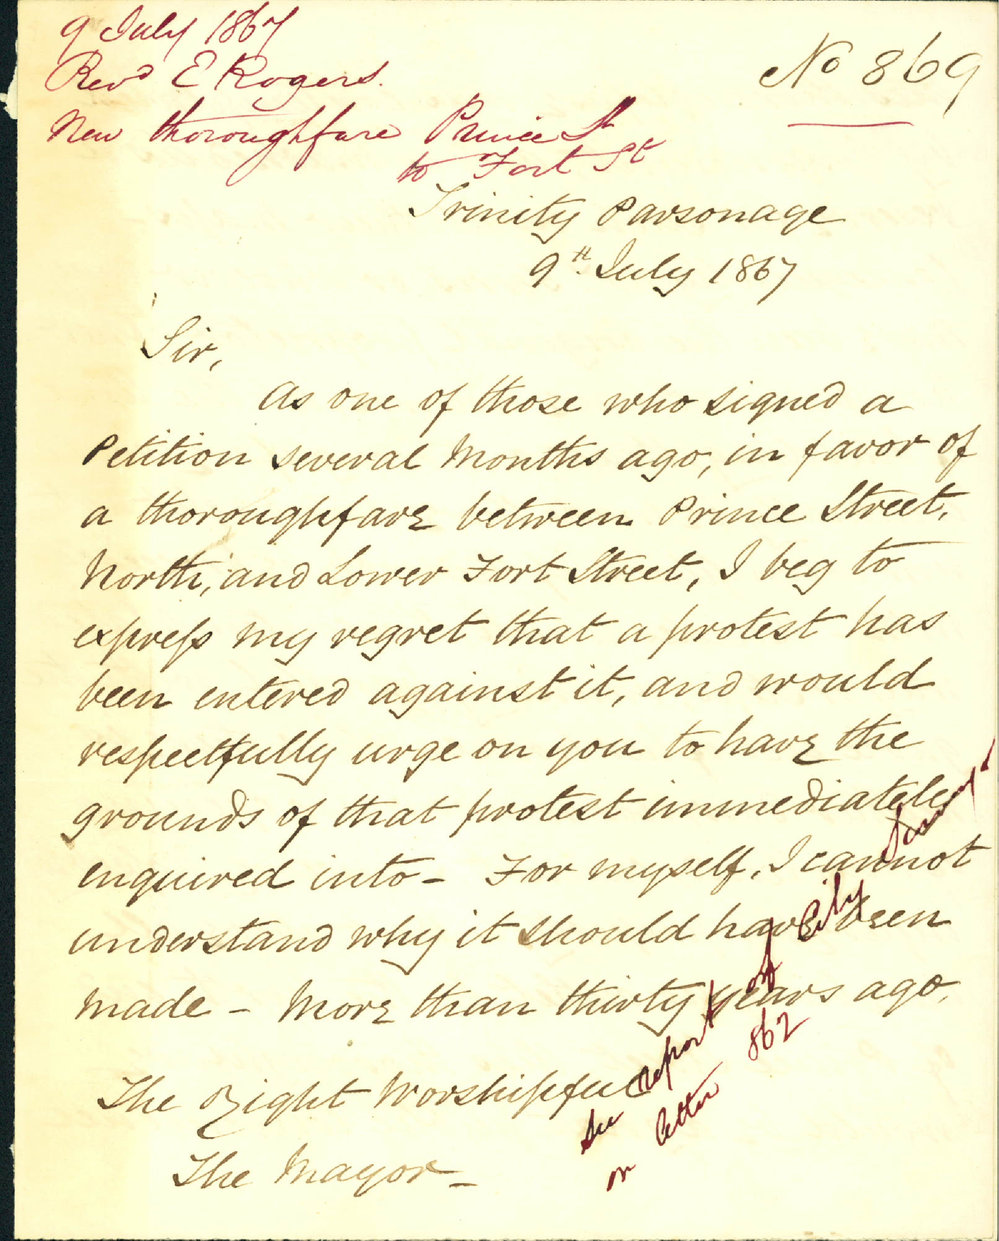 9 July 1867
Revd E Rogers.
New thoroughfare Prince St
to Fort St
No 869
Trinity Parsonage
9th July 1867
Sir,
As one of those who signed a
Petition several Months ago, in favor of
a thoroughfare between Prince Street,
North, and Lower Fort Street, I beg to
express my regret that a protest has
been entered against it, and would
respectfully urge on you to have the
grounds of that protest immediately
enquired into - For myself, I cannot
understand why it should have been
made - More than thirty years ago,
The Right Worshipful
The Mayor -
See report of City
on letter 862